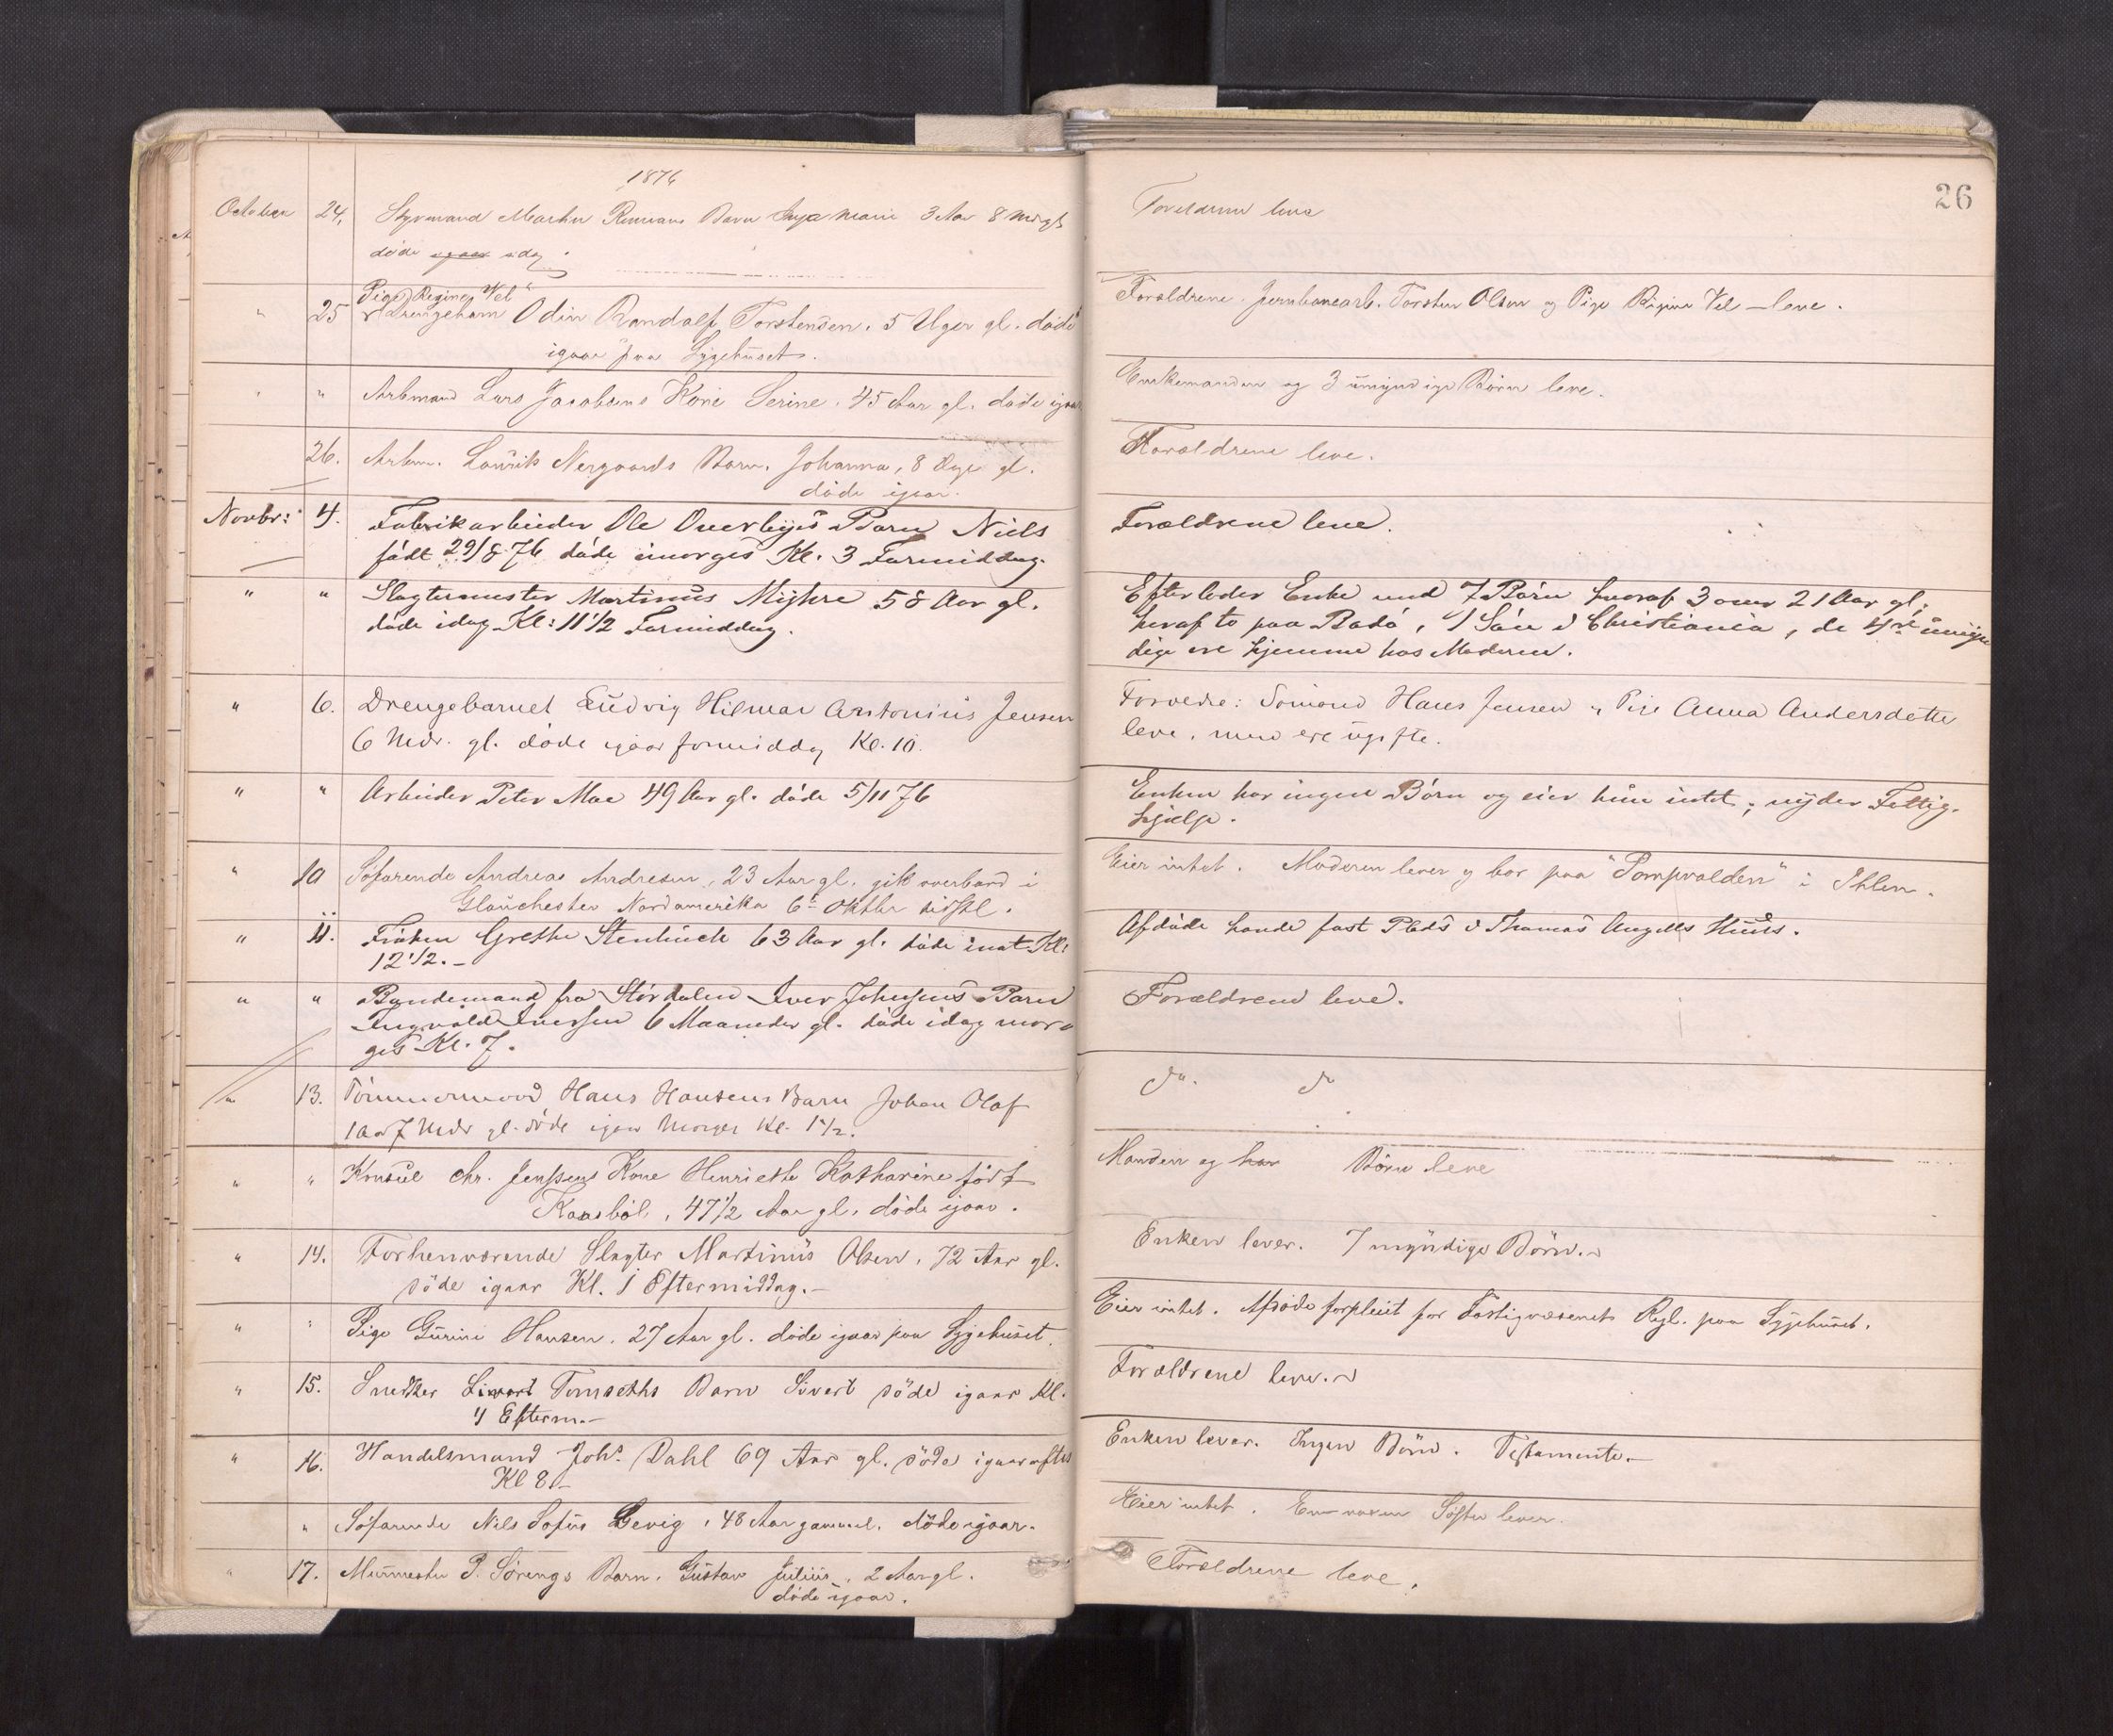 1876
26
October 24. Styrmand Martin Barn Inga Marie 3 Aar 8 Mdr gl.
døde igaar idag.
Forældrene leve
Pige Regine Vel
" 25 Drengebarn Odin Randolf Torstensen. 5 Uger gl. døde
igaar paa Sygehuset.
Forældrene. Jernbanearb. Torsten Olsen og Pige Regine Vel – leve.
" " Arbmand Lars Jacobsens Kone Serine. 45 Aar gl. døde igaar
Enkemanden og 3 umyndige Børn leve.
26. Arbm. Laurits Nergaards Barn. Johanna, 8 Dage gl.
døde igaar.
Forældrene leve.
Novbr: 4. Fabrikarbeider Ole Overbyes Barn Niels
født 29/8 76 døde imorges Kl. 3 Formiddag.
Forældrene leve.
" " Slagtermester Martinus Myhre 58 Aar gl.
døde idag Kl: 11 1/2 Formiddag.
Efterleder Enke med 7 Børn hvoraf 3 over 21 Aar gl;
heraf to paa Bodø, 1 Søn i Christiania, de 4re umyn
dige ere hjemme hos Moderen.
" 6. Drengebarnet Ludvig Hilmar Antonius Jensen
6 Mdr. gl. døde igaar formiddag Kl. 10.
Forældre: Sømand Hans Jensen og Pige Anna Andersdatter
leve, men ere ugifte.
" " Arbeider Peter Moe 49 Aar gl. døde 5/11 76
Enken har ingen Børn og eier hun intet; nyder Fattig-
hjælp.
" 10 Søfarende Andreas Andresen, 23 Aar gl. gik overbord i
Glouchester Nordamerika 6te Oktbr sidstl.
Eier intet. Moderen lever og bor paa "Pompvolden" i Ihlen.
" 11. Frøken Grethe Stenbuch 63 Aar gl. døde inat Kl:
12 1/2.–
Afdøde havde fast Plads i Thomas Angells Huus.
" " Bondemand fra Størdalen Iver Johnsens Barn
Ingvald Iversen 6 Maaneder gl. døde idag mor-
ges Kl. 7.
Forældrene leve.
" 13. Tømmermand Hans Hansens Barn Johan Olaf
1 Aar 7 Mdr gl. døde igaar Morges Kl. 1 1/2.
do. do
" " Konsul Chr. Jenssens Kone Henriette Katharine født
Kaasbøl, 47 1/2 Aar gl. døde igaar.
Manden og har Børn leve
" 14. Forhenværende Slagter Martinus Olsen, 72 Aar gl.
døde igaar Kl. 1 Eftermiddag.–
Enken lever. 7 myndige Børn.
" " Pige Gurine Hansen. 27 Aar gl. døde igaar paa Sygehuset.
Eier intet. Afdøde forpleiet for Fattigvæsenets Regl. paa Sygehuset.
" 15. Snedker Sivert Tomseths Barn Sivert døde igaar Kl.
4 Efterm.–
Forældrene leve.
" 16. Handelsmand Johs. Dahl 69 Aar gl. døde igaar aftes
Kl 8.–
Enken lever. Ingen Børn. Testamente.–
" Søfarende Nils Sofus Gevig. 48 Aar gammel. døde igaar.
Eier intet. En voxen Søster lever.
" 17. Murmester P. Sørengs Barn. Gustav Julius. 2 Aar gl.
døde igaar.
Forældrene leve.